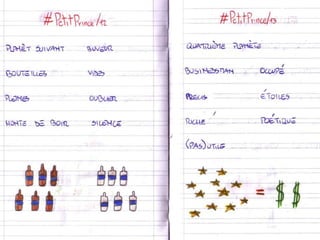 #PetitPrince/12
PLANÈT SUIVANT BUVEUR
BOUTEILLES VIDES
PLEINES OUBLIER
HONTE DE BOIR SILENCE
#PetitPrince/13
QUATRIÈME PLANÈTE
BUSINESSMAN OCCUPÉ
PRECIS ÉTOILES
RICHE POÉTIQUE
(PAS) UTILE
= $ $